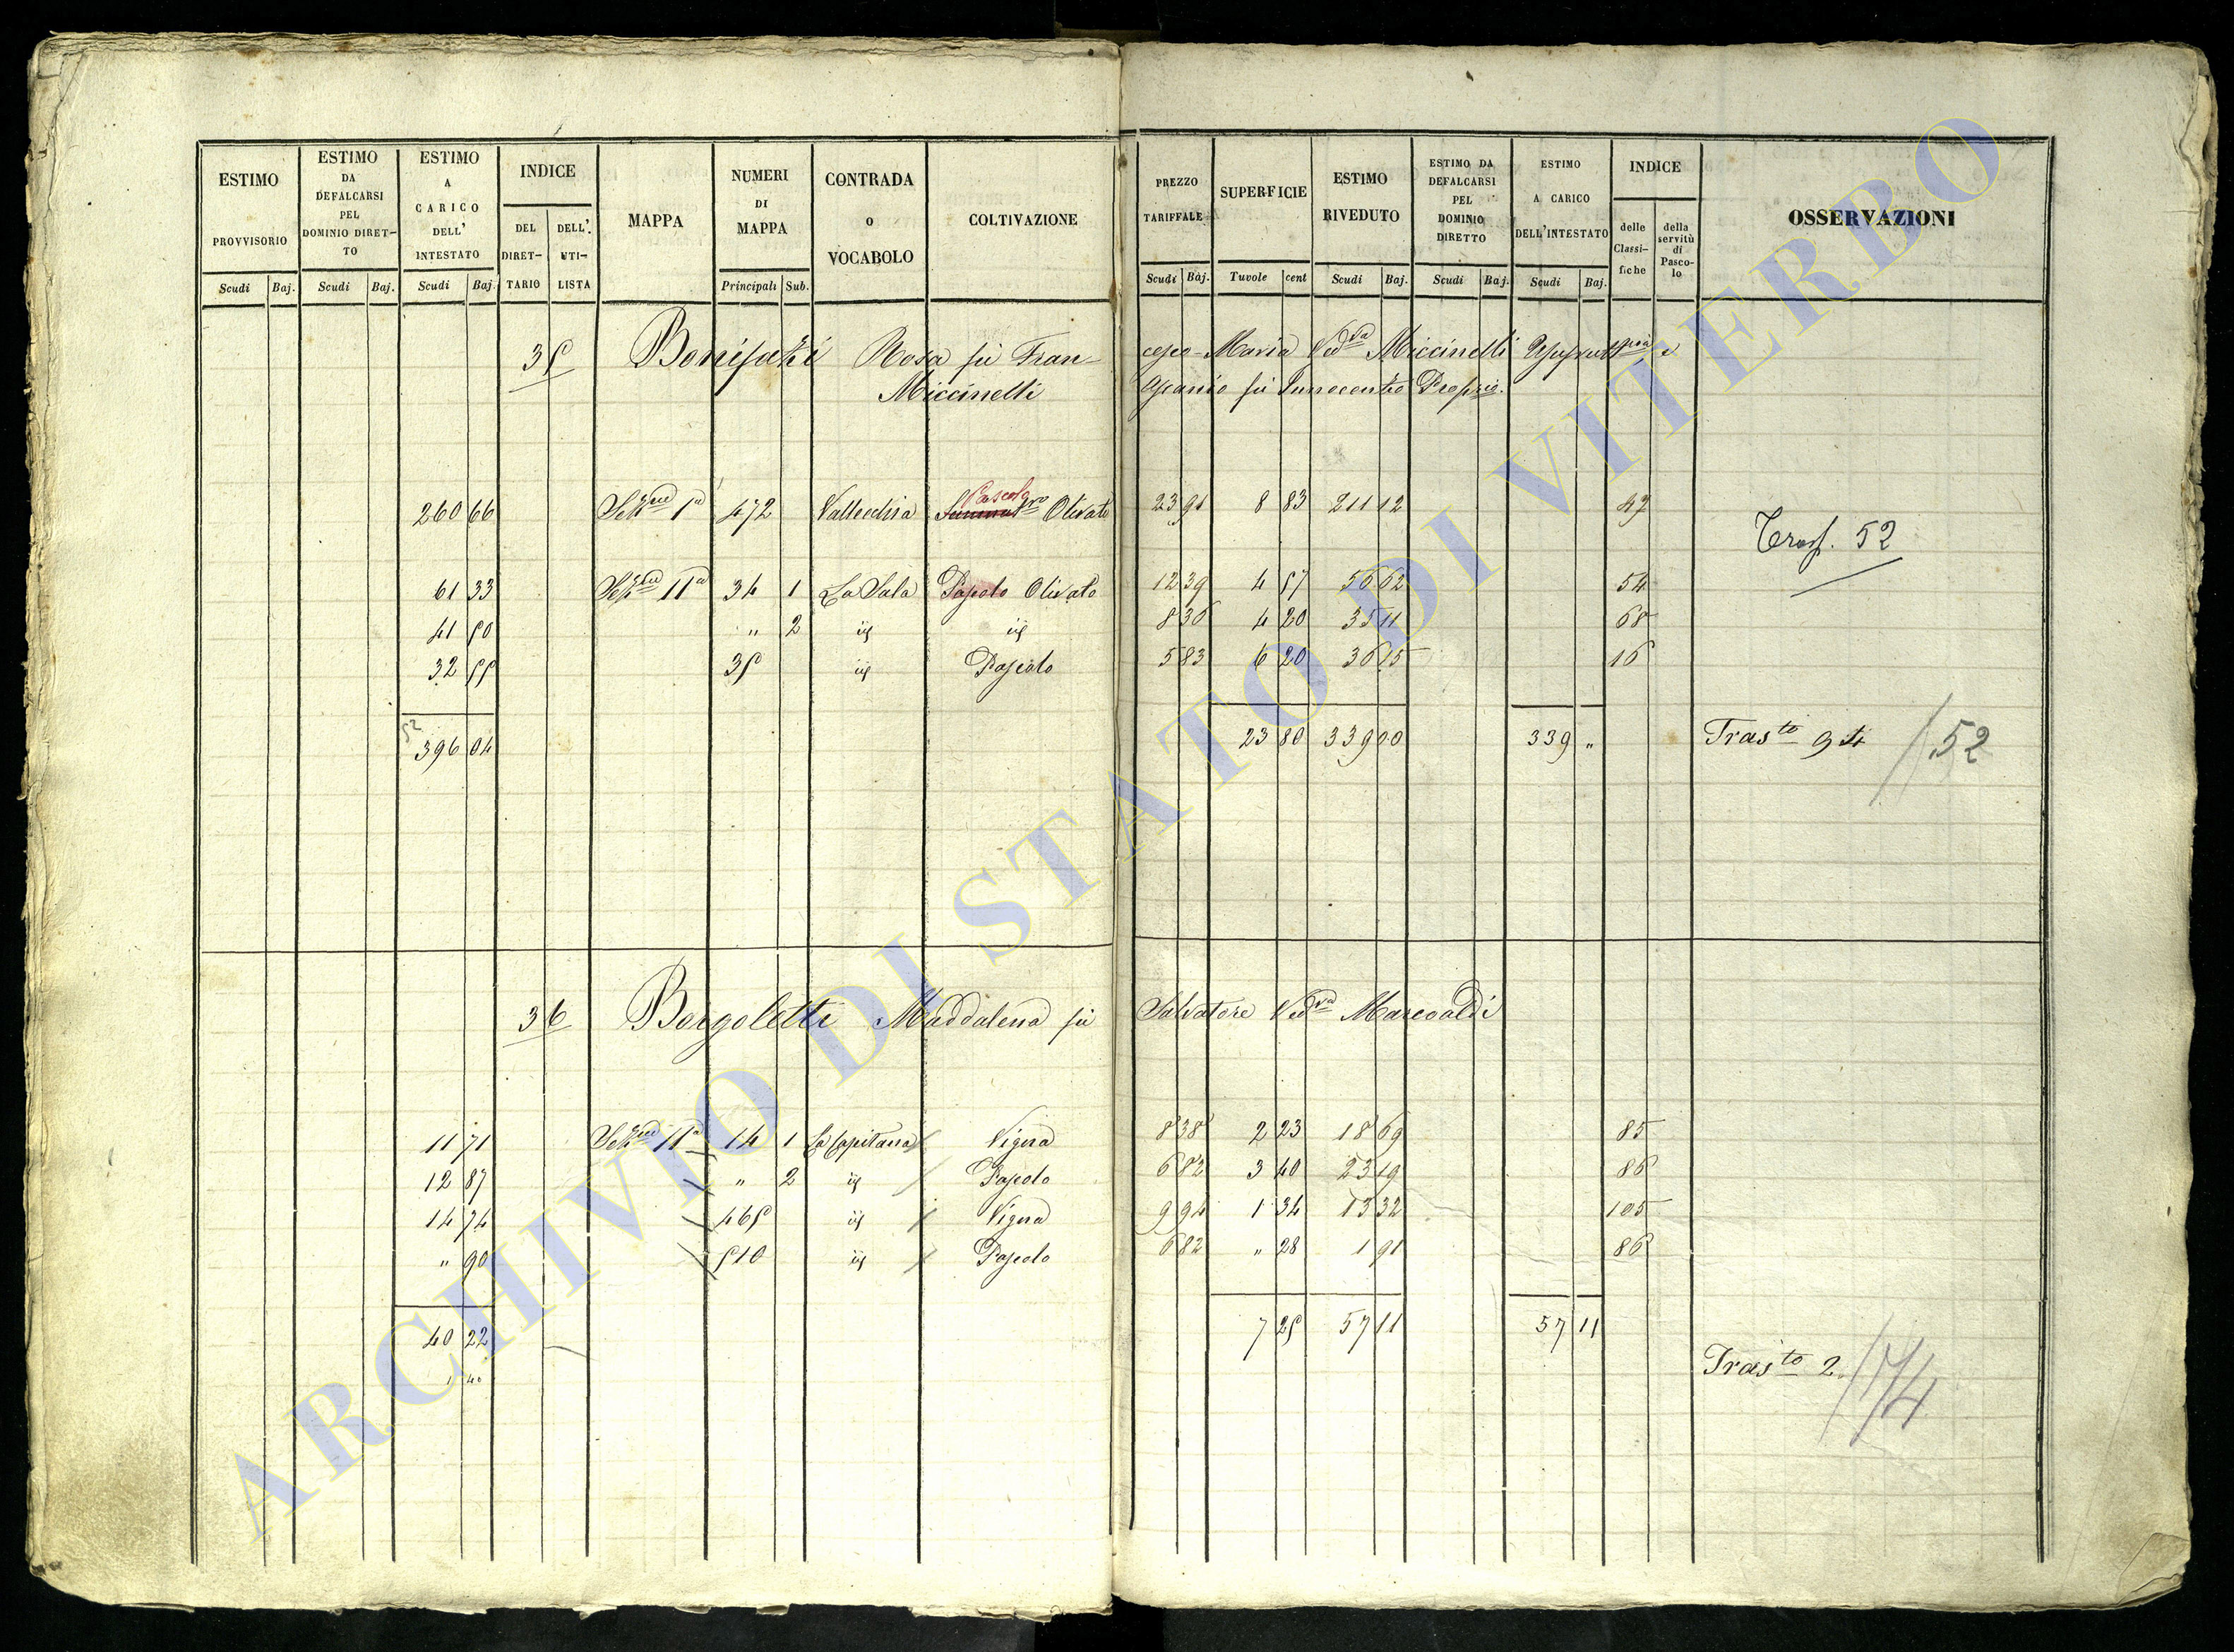 ESTIMO PROVVISORIO
ESTIMO DA DEFALCARSI PEL DOMINIO DIRETTO
ESTIMO A CARICO DELL' INTESTATO
INDICE
DEL DIRETTARIO
DELL' UTILISTA
MAPPA
NUMERI DI MAPPA
CONTRADA O VOCABOLO
COLTIVAZIONE
PREZZO TARIFFALE
SUPERFICIE
ESTIMO RIVEDUTO
ESTIMO DA DEFALCARSI PEL DOMINIO DIRETTO
ESTIMO A CARICO DELL'INTESTATO
INDICE
delle Classifiche
della servitù di Pascolo
OSSERVAZIONI
Scudi Baj. Scudi Baj. Scudi Baj. Principali Sub. Scudi Baj. Tavole cent Scudi Baj. Scudi Baj. Scudi Baj.
35 Bonifazi Rosa fù Francesco Maria Ved.va Miccinelli e
Miccinelli Ascanio fù Innocentio
260 66 Sez.ne 1a 472 Vallecchia Pascolo Olivato 23 91 8 83 211 12 47
Trasp. 52
61 33 Sez.ne 11a 34 1 La Sala Pascolo Olivato 12 39 4 57 56 62 54
41 50 " 2 id id 8 36 4 20 35 11 68
32 55 35 id Pascolo 5 83 6 20 36 15 16
52
396 04 23 80 339 00 339 " Tras.to 94 / 52
36 Borgoletti Maddalena fù Salvatore Ved.va Marcoaldi
11 71 Sez.ne 11a 14 1 La Capitana Vigna 8 38 2 23 18 69 85
12 87 " 2 id Pascolo 6 82 3 40 23 19 86
14 74 465 id Vigna 9 94 1 34 13 32 105
" 90 510 id Pascolo 6 82 " 28 1 91 86
40 22 7 25 57 11 57 11
1 40 Tras.to 2 / 174
ARCHIVIO DI STATO DI VITERBO